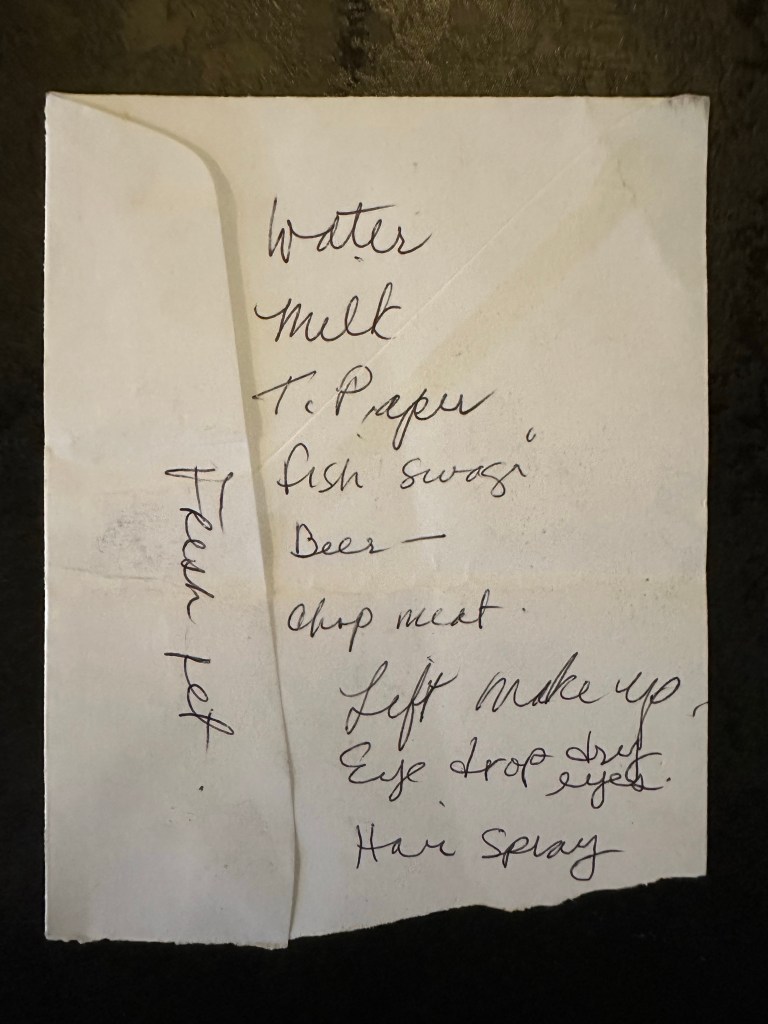 Water
Milk
T. Paper
fish
Beer —
Chop meat.
Lift make up
Eye drop dry
eyes.
Hair Spray
Fresh pet.